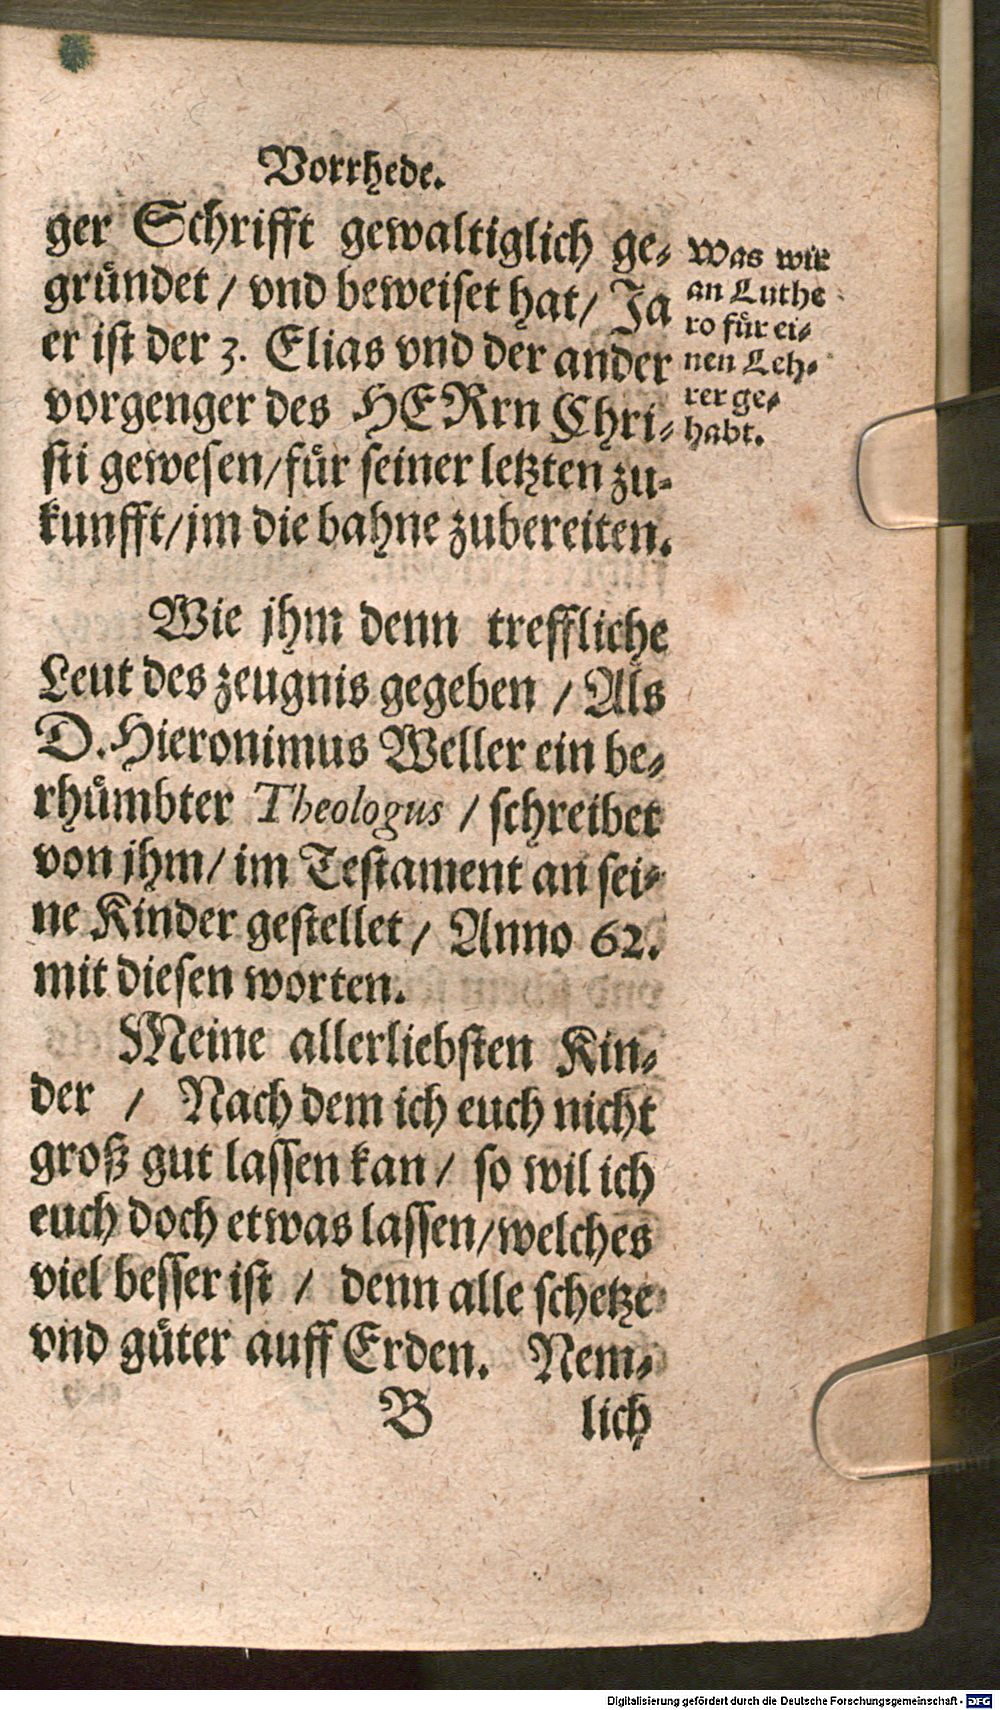 Vorrhede.
ger Schrifft gewaltiglich ge-
gründet / vnd beweiset hat / Ja
er ist der 3. Elias vnd der ander
vorgenger des HERrn Chri-
sti gewesen / für seiner letzten zu-
kunfft / jm die bahne zubereiten.
Was wir
an Luthe
ro für ei-
nen Leh-
rer ge-
habt.
Wie jhm denn treffliche
Leut des zeugnis gegeben / Als
D. Hieronimus Weller ein be-
rhümbter Theologus / schreibet
von jhm / im Testament an sei-
ne Kinder gestellet / Anno 62.
mit diesen worten.
Meine allerliebsten Kin-
der / Nach dem ich euch nicht
groß gut lassen kan / so wil ich
euch doch etwas lassen / welches
viel besser ist / denn alle schetze
vnd güter auff Erden. Nem-
B lich
Digitalisierung gefördert durch die Deutsche Forschungsgemeinschaft - DFG